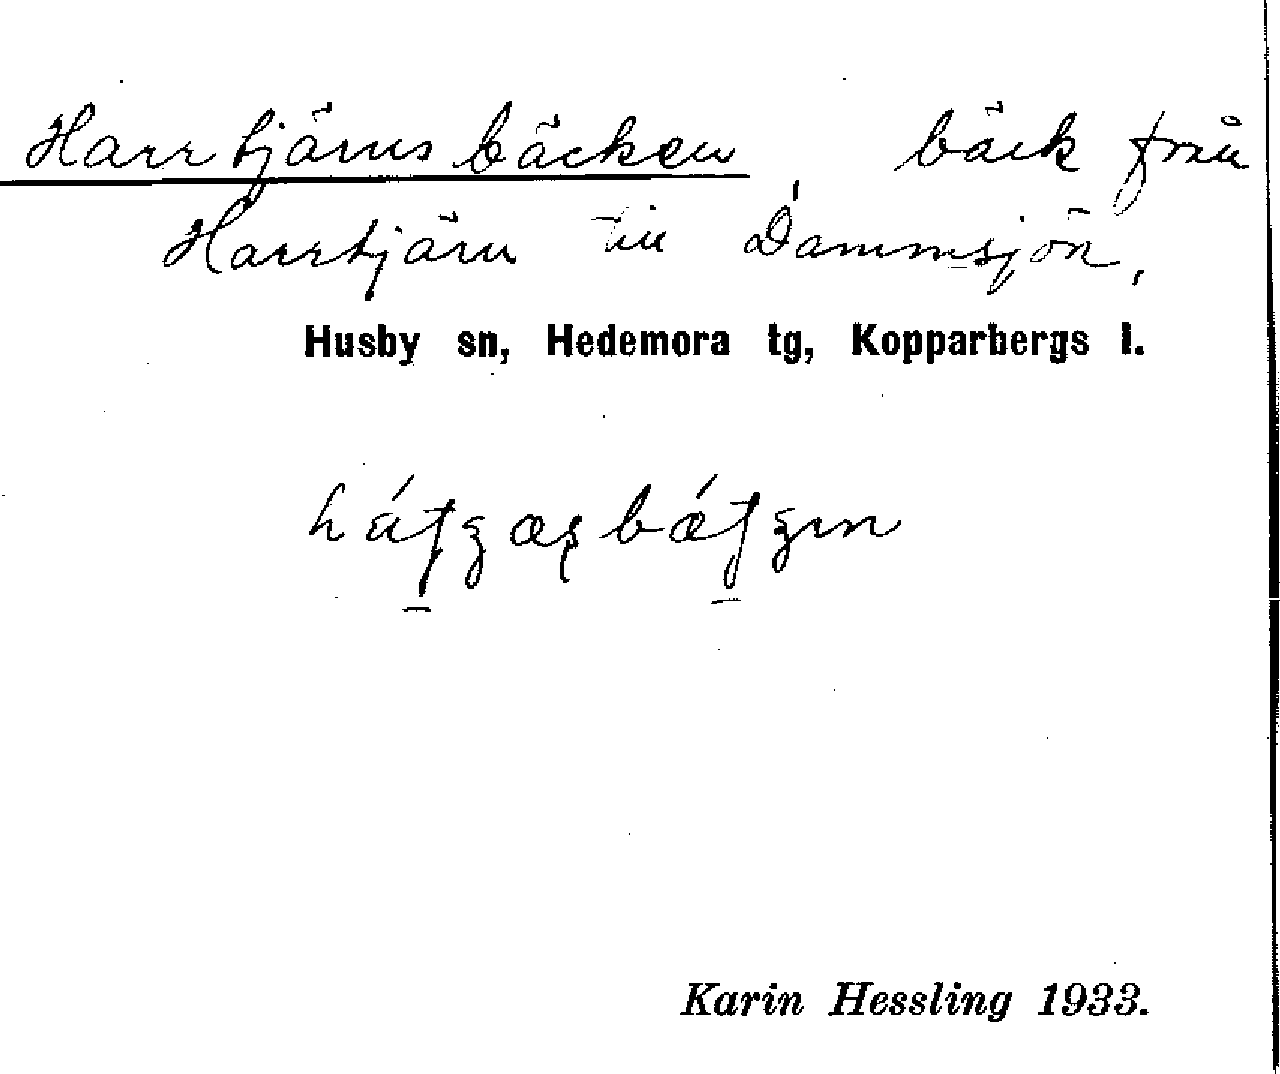 Harrtjärnsbäcken, bäck från
Harrtjärn till Dammsjön,
Husby sn, Hedemora tg, Kopparbergs l.
Karin Hessling 1933.